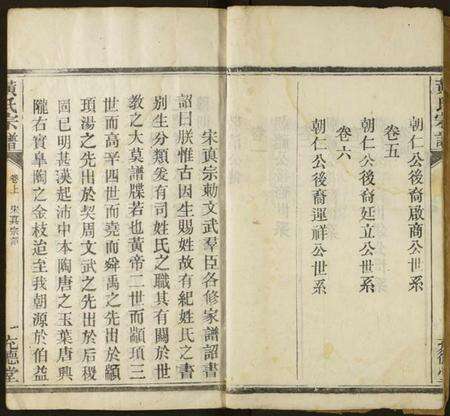 朝仁公後裔啟商公世系
卷五
朝仁公後裔廷立公世系
卷六
朝仁公後裔運祥公世系
宋真宗勅文武羣臣各修家譜詔書
詔曰朕惟古因生賜姓故有紀姓氏之書
別生分類爰有司姓氏之職其有關於世
教之大莫譜牒若也黃帝二世而顓頊三
世而高辛四世而堯而舜禹之先出於顓
頊湯之先出於契周文武之先出於后稷
固已明甚漢起沛中本陶唐之玉葉唐興
隴右實臯陶之金枝迨至我朝源於伯益
黃氏宗譜
卷上
宋真宗
一
充德堂